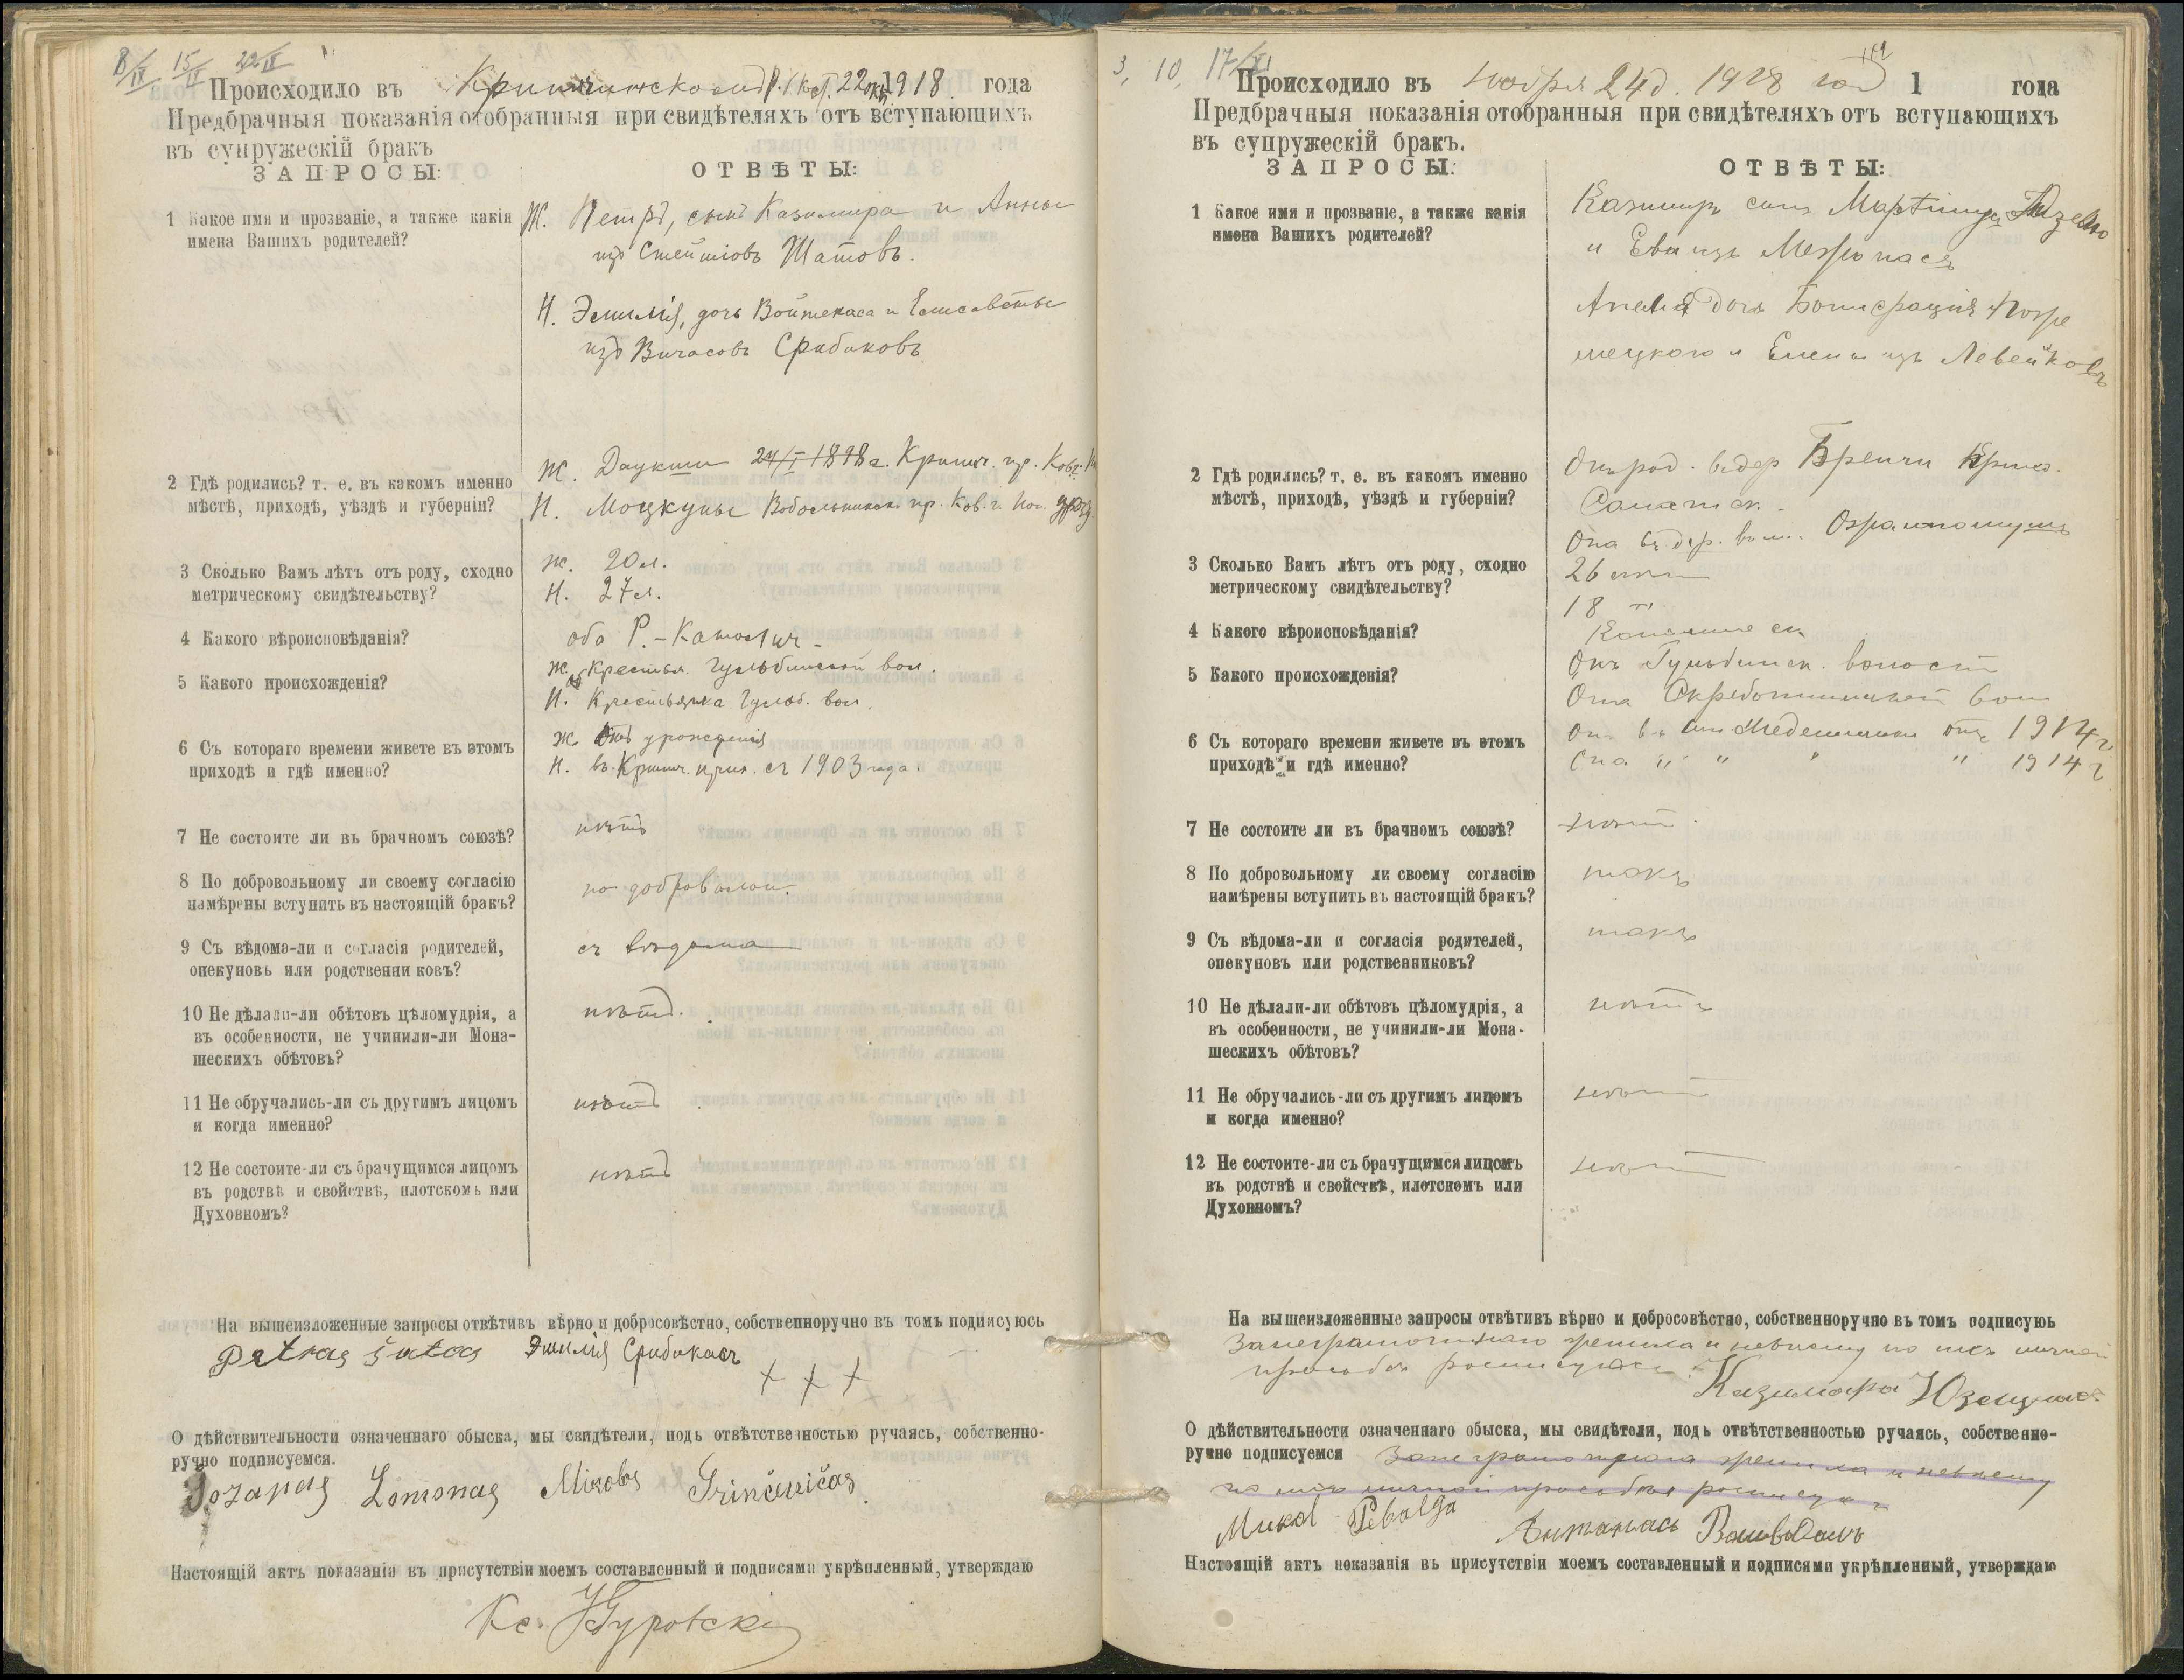 8/IX 15/IX 22/IX
Происходило въ Криничинскомъ Р. К. Кост. 22 1918 года
Предбрачныя показанія отобранныя при свидѣтеляхъ отъ вступающихъ
въ супружескій бракъ
ЗАПРОСЫ: ОТВѢТЫ:
1 Какое имя и прозваніе, а также какія
имена Вашихъ родителей?
Ж. Петръ, сынъ Казимира и Анны
изъ Шатовъ.
Н. Эмилія, дочь Войтекаса и Елисаветы
изъ Срибиковъ.
2 Гдѣ родились? т. е. въ какомъ именно
мѣстѣ, приходѣ, уѣздѣ и губерніи?
Ж. Даукши 24/I 1898 г. Кринич. пр. Ков. г.
Н. Моцкупы пр. Ков. г.
3 Сколько Вамъ лѣтъ отъ роду, сходно
метрическому свидѣтельству?
Ж. 20 л.
Н. 27 л.
4 Какого вѣроисповѣданія?
оба Р.-Католич.
5 Какого происхожденія?
Ж. Крестьян. Гульбинской вол.
Н. Крестьянка Гульб. вол.
6 Съ котораго времени живете въ этомъ
приходѣ и гдѣ именно?
Ж. отъ урожденія
Н. въ Кринич. прих. съ 1903 года.
7 Не состоите ли въ брачномъ союзѣ?
нѣтъ
8 По добровольному ли своему согласію
намѣрены вступить въ настоящій бракъ?
по добровольн.
9 Съ вѣдома-ли и согласія родителей,
опекуновъ или родственни ковъ?
съ вѣдома
10 Не дѣлали-ли обѣтовъ цѣломудрія, а
въ особенности, не учинили-ли Мона-
шескихъ обѣтовъ?
нѣтъ.
11 Не обручались-ли съ другимъ лицомъ
и когда именно?
нѣтъ
12 Не состоите-ли съ брачущимся лицомъ
въ родствѣ и свойствѣ, плотскомъ или
Духовномъ?
нѣтъ
На вышеизложенные запросы отвѣтивъ вѣрно и добросовѣстно, собственноручно въ томъ подписуюсь
Petras Šutas Эмилія Срибикасъ
+ + +
О дѣйствительности означеннаго обыска, мы свидѣтели, подъ отвѣтственностью ручаясь, собственно-
ручно подписуемся.
Jozapas Lomonas Mikolas Grincevičas
Настоящій актъ показанія въ присутствіи моемъ составленный и подписями укрѣпленный, утверждаю
Кс.
3, 10, 17/XI
Происходило въ ноября 24 д. 1918 год 1 года
Предбрачныя показанія отобранныя при свидѣтеляхъ отъ вступающихъ
въ супружескій бракъ.
ЗАПРОСЫ: ОТВѢТЫ:
1 Какое имя и прозваніе, а также какія
имена Вашихъ родителей?
Казимиръ сынъ
и Евы изъ
Апелія дочь Бонифація
и Елены изъ Левейковъ
2 Гдѣ родились? т. е. въ какомъ именно
мѣстѣ, приходѣ, уѣздѣ и губерніи?
Онъ род. в дер Бренчи
Она въ дер.
3 Сколько Вамъ лѣтъ отъ роду, сходно
метрическому свидѣтельству?
26 лѣтъ
18 "
4 Какого вѣроисповѣданія?
5 Какого происхожденія?
Онъ Гульбинск. волости
Она вол
6 Съ котораго времени живете въ этомъ
приходѣ и гдѣ именно?
Онъ въ отъ 1914 г.
Она " " " " 1914 г
7 Не состоите ли въ брачномъ союзѣ?
нѣтъ
8 По добровольному ли своему согласію
намѣрены вступить въ настоящій бракъ?
такъ
9 Съ вѣдома-ли и согласія родителей,
опекуновъ или родственниковъ?
такъ
10 Не дѣлали-ли обѣтовъ цѣломудрія, а
въ особенности, не учинили-ли Мона-
шескихъ обѣтовъ?
нѣтъ
11 Не обручались-ли съ другимъ лицомъ
и когда именно?
нѣтъ
12 Не состоите-ли съ брачущимся лицомъ
въ родствѣ и свойствѣ, плотскомъ или
Духовномъ?
нѣтъ
На вышеизложенные запросы отвѣтивъ вѣрно и добросовѣстно, собственноручно въ томъ подписуюь
За неграмотнаго жениха и невѣсту по ихъ личной
просьбѣ росписуюсь
О дѣйствительности означеннаго обыска, мы свидѣтели, подъ отвѣтственностью ручаясь, собственно-
ручно подписуемся За неграмотнаго жениха и невѣсту
по ихъ личной просьбѣ росписуюсь
Антанась
Настоящій актъ показанія въ присутствіи моемъ составленный и подписями укрѣпленный, утверждаю